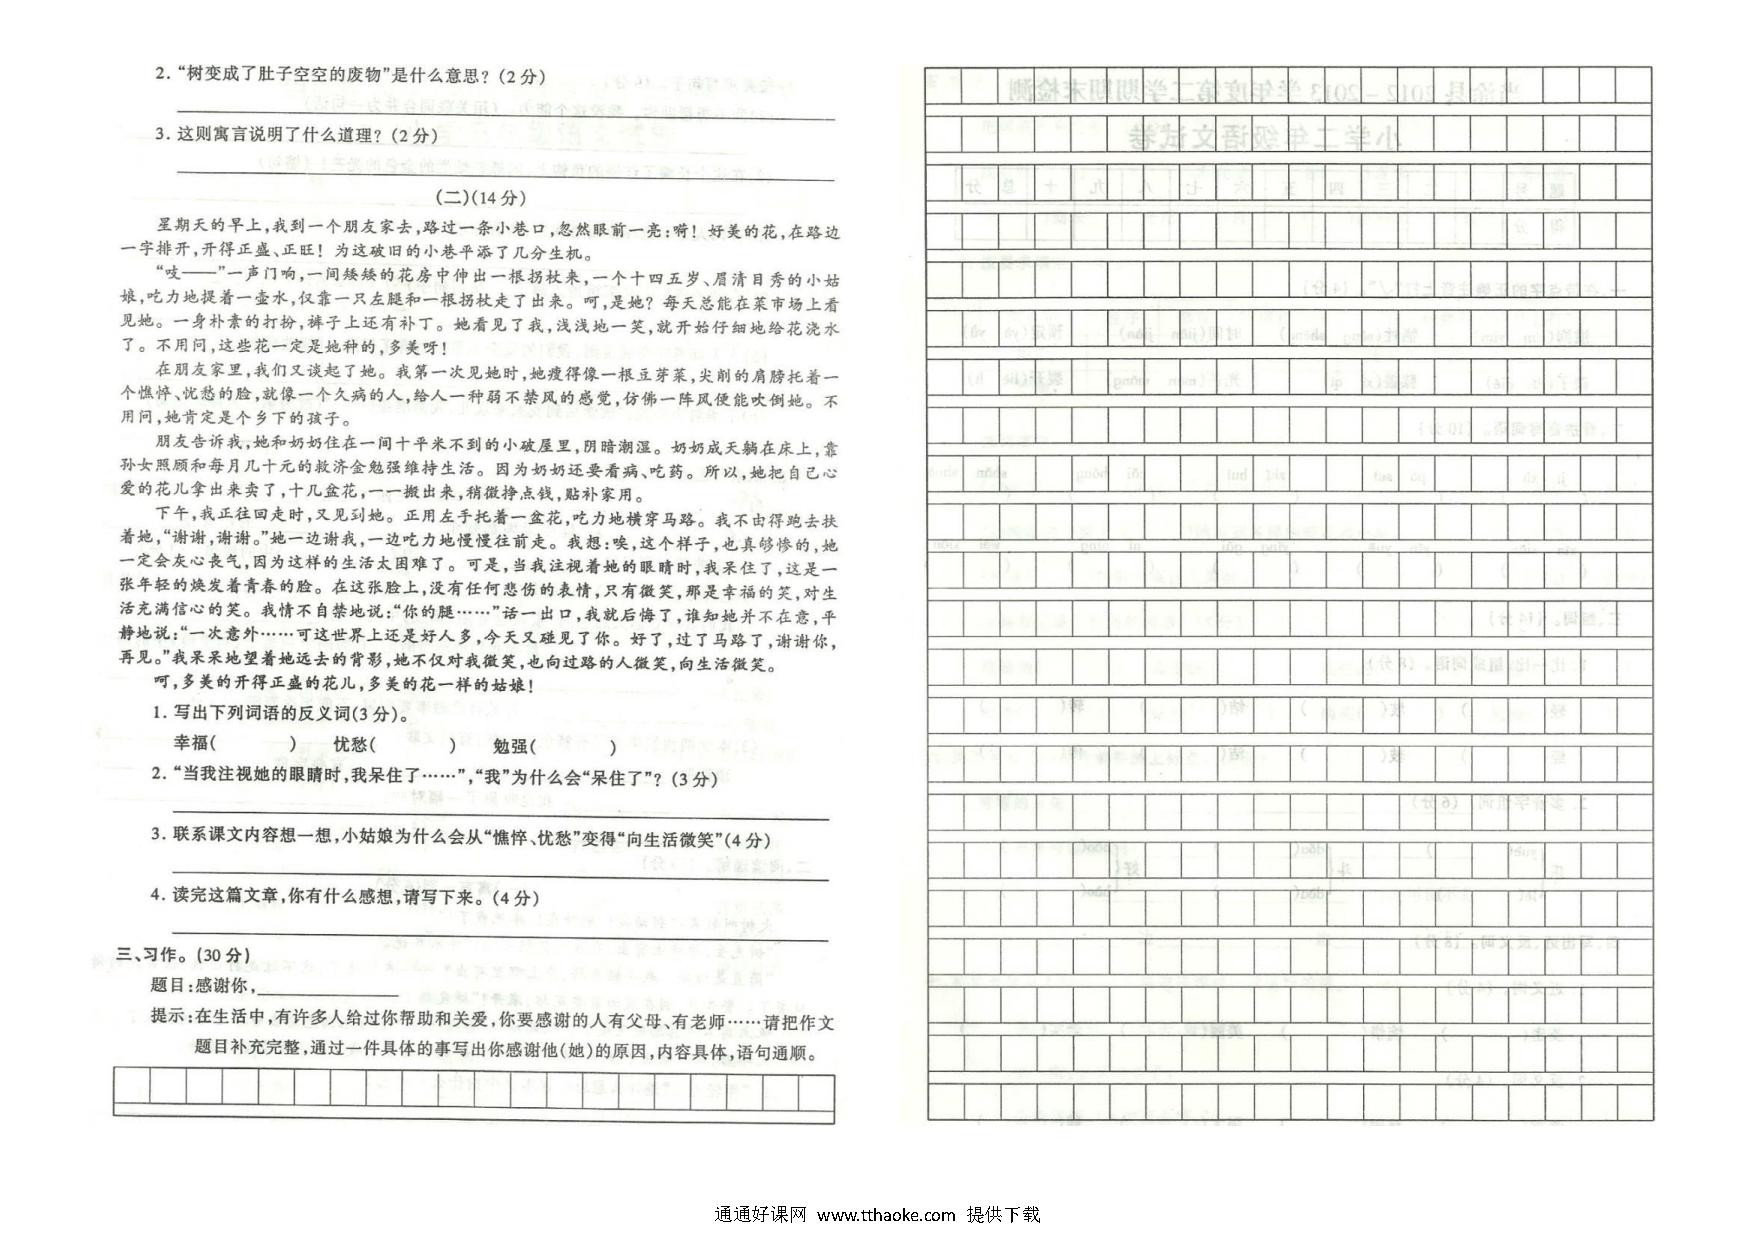 2. “树变成了肚子空空的废物”是什么意思? (2分)
3. 这则寓言说明了什么道理? (2分)
(二)(14分)
星期天的早上,我到一个朋友家去,路过一条小巷口,忽然眼前一亮:嗬! 好美的花,在路边
一字排开,开得正盛、正旺! 为这破旧的小巷平添了几分生机。
“吱——”一声门响,一间矮矮的花房中伸出一根拐杖来,一个十四五岁、眉清目秀的小姑
娘,吃力地提着一壶水,仅靠一只左腿和一根拐杖走了出来。呵,是她? 每天总能在菜市场上看
见她。一身朴素的打扮,裤子上还有补丁。她看见了我,浅浅地一笑,就开始仔细地给花浇水
了。不用问,这些花一定是她种的,多美呀!
在朋友家里,我们又谈起了她。我第一次见她时,她瘦得像一根豆芽菜,尖削的肩膀托着一
个憔悴、忧愁的脸,就像一个久病的人,给人一种弱不禁风的感觉,仿佛一阵风便能吹倒她。不
用问,她肯定是个乡下的孩子。
朋友告诉我,她和奶奶住在一间十平米不到的小破屋里,阴暗潮湿。奶奶成天躺在床上,靠
孙女照顾和每月几十元的救济金勉强维持生活。因为奶奶还要看病、吃药。所以,她把自己心
爱的花儿拿出来卖了,十几盆花,一一搬出来,稍微挣点钱,贴补家用。
下午,我正往回走时,又见到她。正用左手托着一盆花,吃力地横穿马路。我不由得跑去扶
着她,“谢谢,谢谢。”她一边谢我,一边吃力地慢慢往前走。我想:唉,这个样子,也真够惨的,她
一定会灰心丧气,因为这样的生活太困难了。可是,当我注视着她的眼睛时,我呆住了,这是一
张年轻的焕发着青春的脸。在这张脸上,没有任何悲伤的表情,只有微笑,那是幸福的笑,对生
活充满信心的笑。我情不自禁地说:“你的腿……”话一出口,我就后悔了,谁知她并不在意,平
静地说:“一次意外……可这世界上还是好人多,今天又碰见了你。好了,过了马路了,谢谢你,
再见。”我呆呆地望着她远去的背影,她不仅对我微笑,也向过路的人微笑,向生活微笑。
呵,多美的开得正盛的花儿,多美的花一样的姑娘!
1. 写出下列词语的反义词(3分)。
幸福(　　　) 忧愁(　　　) 勉强(　　　)
2. “当我注视她的眼睛时,我呆住了……”,“我”为什么会“呆住了”? (3分)
3. 联系课文内容想一想,小姑娘为什么会从“憔悴、忧愁”变得“向生活微笑”(4分)
4. 读完这篇文章,你有什么感想,请写下来。(4分)
三、习作。(30分)
题目:感谢你,
提示:在生活中,有许多人给过你帮助和关爱,你要感谢的人有父母、有老师……请把作文
题目补充完整,通过一件具体的事写出你感谢他(她)的原因,内容具体,语句通顺。
通通好课网 www.tthaoke.com 提供下载